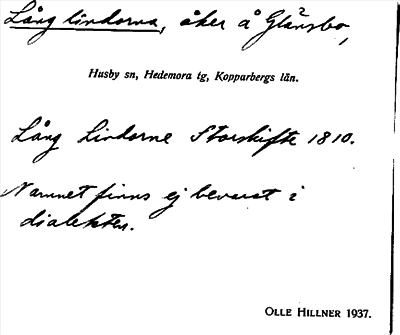 Lång lindorna, åker å Glänsbo,
Husby sn, Hedemora tg, Kopparbergs län.
Lång Lindorne Storskifte 1810.
Namnet finns ej bevarat i
dialekten.
OLLE HILLNER 1937.